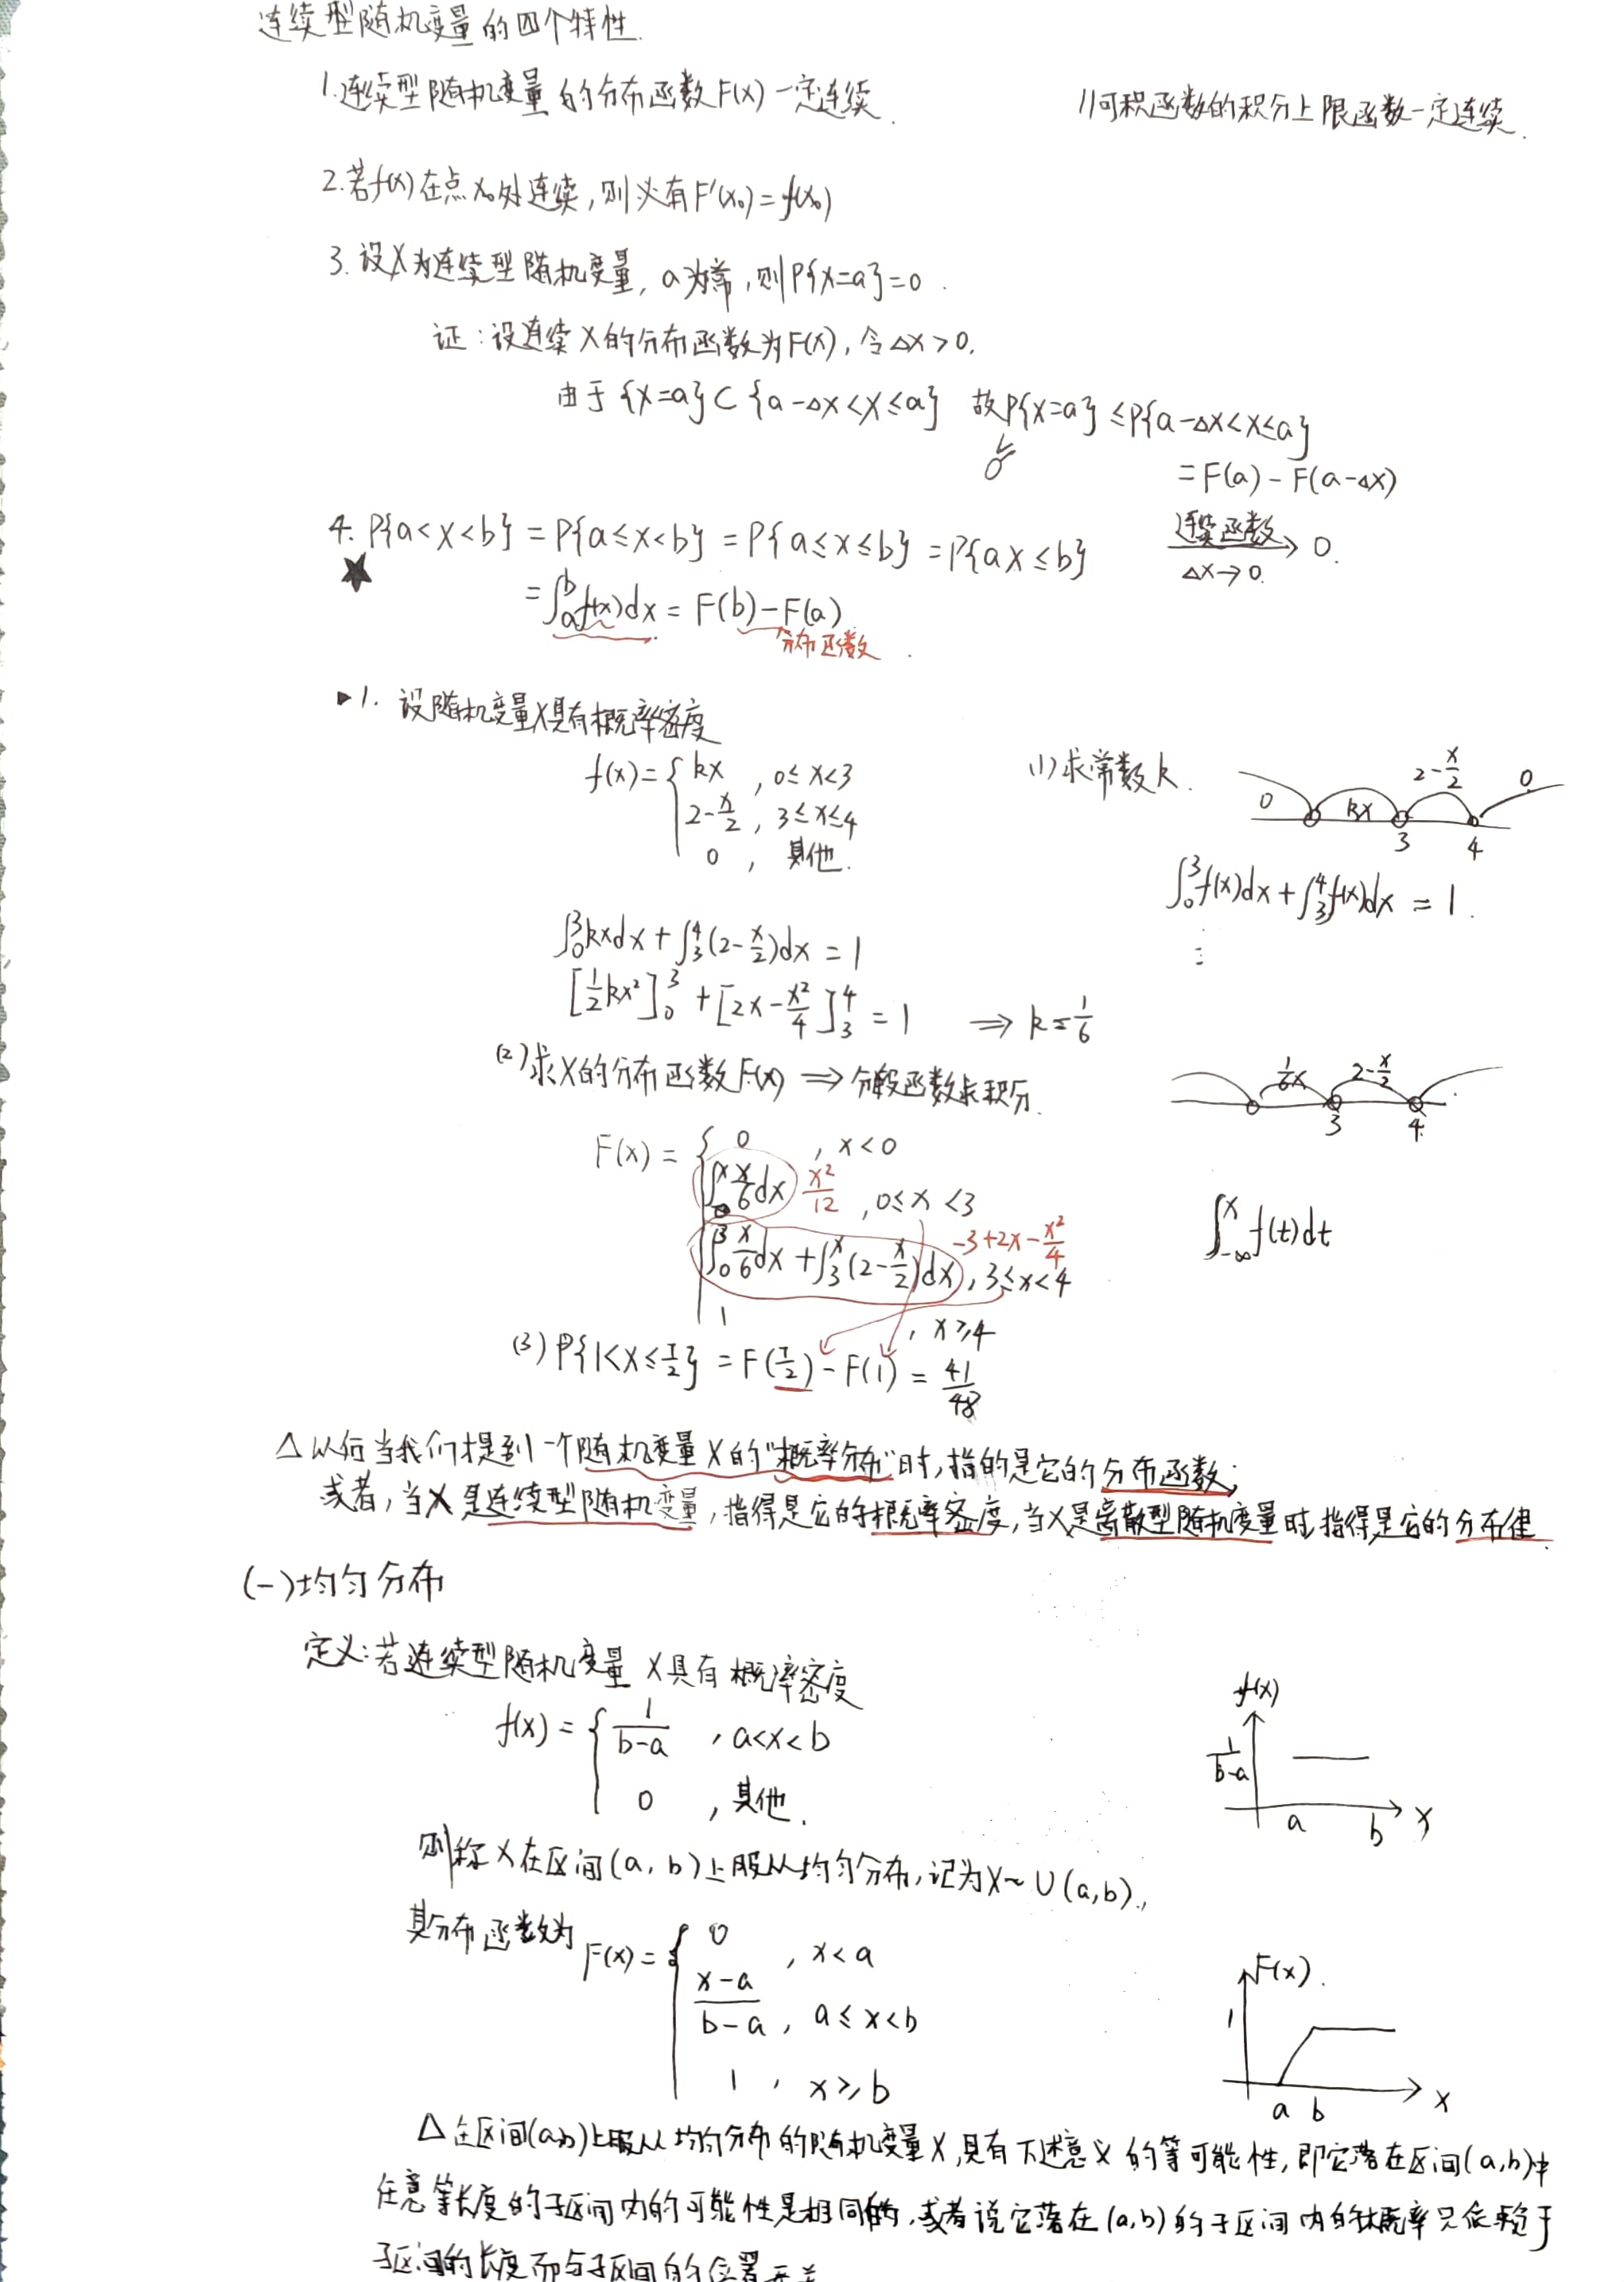 连续型随机变量的四个特性.
1.连续型随机变量的分布函数F(x)一定连续.
//可积函数的积分上限函数一定连续.
2.若f(x)在点x₀处连续,则必有F'(x₀)=f(x₀)
3.设X为连续型随机变量,a为常,则P{X=a}=0.
证:设连续X的分布函数为F(x),令△x>0.
由于{X=a}⊂{a-△x<X≤a} 故P{X=a}≤P{a-△x<X≤a}
0≤
=F(a)-F(a-△x)
连续函数
△x→0 → 0.
4.P{a<X<b}=P{a≤X<b}=P{a≤X≤b}=P{aX≤b}
★
=∫ₐᵇf(x)dx=F(b)-F(a)
分布函数.
▸1. 设随机变量X具有概率密度
f(x)={kx , 0≤x<3
2-x/2 , 3≤x≤4
0 , 其他.
(1)求常数k.
0 kx 2-x/2 0
3 4
∫₀³f(x)dx+∫₃⁴f(x)dx=1.
∫₀³kxdx+∫₃⁴(2-x/2)dx=1
[½kx²]₀³+[2x-x²/4]₃⁴=1 ⇒k=1/6
(2)求X的分布函数F(x)⇒分段函数求积分.
1/6x 2-x/2
3 4
F(x)={0 , x<0
∫₀ˣx/6dx x²/12 , 0≤x<3
∫₀³x/6dx+∫₃ˣ(2-x/2)dx -3+2x-x²/4 , 3≤x<4
1 , x≥4
∫₋∞ˣf(t)dt
(3)P{1<X≤7/2}=F(7/2)-F(1)=41/48
△以后当我们提到一个随机变量X的"概率分布"时,指的是它的分布函数;
或者,当X是连续型随机变量,指得是它的概率密度,当X是离散型随机变量时,指得是它的分布律.
(一)均匀分布
定义:若连续型随机变量X具有概率密度
f(x)={1/(b-a) , a<x<b
0 , 其他.
f(x)
1/(b-a)
a b x
则称X在区间(a,b)上服从均匀分布,记为X~U(a,b).
其分布函数为F(x)={0 , x<a
(x-a)/(b-a) , a≤x<b
1 , x≥b
F(x).
1
a b x
△在区间(a,b)上服从均匀分布的随机变量X,具有下述意义的等可能性,即它落在区间(a,b)中
任意等长度的子区间内的可能性是相同的,或者说它落在(a,b)的子区间内的概率只依赖于
子区间的长度而与子区间的位置无关